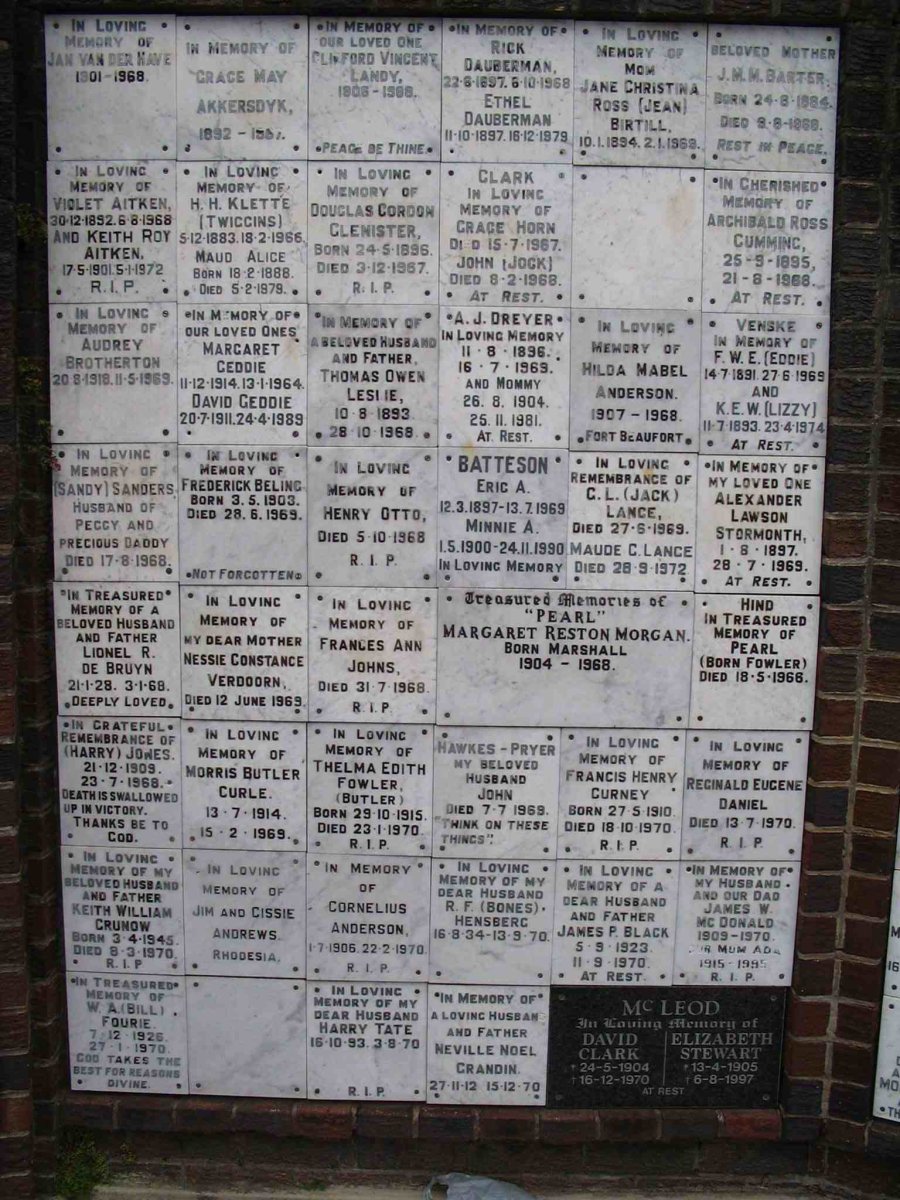 IN LOVING
MEMORY OF
JAN VAN DER HAVE
1901-1968.
IN MEMORY OF
GRACE MAY
AKKERSDYK,
1892 - 1967.
IN MEMORY OF
OUR LOVED ONE
CLIFFORD VINCENT
LANDY,
PEACE BE THINE.
IN MEMORY OF
RICK
DAUBERMAN,
22·6·1897. 6·10·1968
ETHEL
DAUBERMAN
11·10·1897. 16·12·1979
IN LOVING
MEMORY OF
MOM
JANE CHRISTINA
ROSS (JEAN)
BIRTILL,
10.1.1894. 2.1.1969.
BELOVED MOTHER
J.M.M. BARTER.
BORN 24·8·1884.
DIED 9·8·1968.
REST IN PEACE.
IN LOVING
MEMORY OF
VIOLET AITKEN,
30·12·1892. 6·8·1968
AND KEITH ROY
AITKEN,
17·5·1901. 5·1·1972
R.I.P.
IN LOVING
MEMORY OF
H.H. KLETTE
(TWIGGINS)
5·12·1883. 18·2·1966.
MAUD ALICE
BORN 18·2·1888.
DIED 5·2·1979.
IN LOVING
MEMORY OF
DOUGLAS GORDON
GLENISTER,
BORN 24·5·1896.
DIED 3·12·1967.
R.I.P.
CLARK
IN LOVING
MEMORY OF
GRACE HORN
DIED 15·7·1967.
JOHN (JOCK)
DIED 8·2·1968.
AT REST.
IN CHERISHED
MEMORY OF
ARCHIBALD ROSS
CUMMING,
25-9-1895,
21-8-1968.
AT REST.
IN LOVING
MEMORY OF
AUDREY
BROTHERTON
20·8·1918. 11·5·1969.
IN MEMORY OF
OUR LOVED ONES
MARGARET
GEDDIE
11·12·1914. 13·1·1964.
DAVID GEDDIE
20·7·1911. 24·4·1989
IN MEMORY OF
A BELOVED HUSBAND
AND FATHER,
THOMAS OWEN
LESLIE,
10·8·1893
28·10·1968.
A.J. DREYER
IN LOVING MEMORY
11·8·1896.
16·7·1969.
AND MOMMY
26.8.1904.
25.11.1981.
AT REST.
IN LOVING
MEMORY OF
HILDA MABEL
ANDERSON.
1907 - 1968.
FORT BEAUFORT.
VENSKE
IN MEMORY OF
F.W.E. (EDDIE)
14·7·1891. 27·6·1969
AND
K.E.W. (LIZZY)
11·7·1893. 23·4·1974
AT REST.
IN LOVING
MEMORY OF
(SANDY) SANDERS,
HUSBAND OF
PEGGY AND
PRECIOUS DADDY
DIED 17·8·1968.
IN LOVING
MEMORY OF
FREDERICK BELING
BORN 3.5.1903.
DIED 28.6.1969.
NOT FORGOTTEN
IN LOVING
MEMORY OF
HENRY OTTO,
DIED 5·10·1968
R.I.P.
BATTESON
ERIC A.
12.3.1897-13.7.1969
MINNIE A.
1.5.1900-24.11.1990
IN LOVING MEMORY
IN LOVING
REMEMBRANCE OF
C.L. (JACK)
LANCE,
DIED 27·6·1969.
MAUDE C. LANCE
DIED 28·9·1972
IN MEMORY OF
MY LOVED ONE
ALEXANDER
LAWSON
STORMONTH,
1·8·1897.
28·7·1969.
AT REST.
IN TREASURED
MEMORY OF A
BELOVED HUSBAND
AND FATHER
LIONEL R.
DE BRUYN
21·1·28. 3·1·68.
DEEPLY LOVED.
IN LOVING
MEMORY OF
MY DEAR MOTHER
NESSIE CONSTANCE
VERDOORN,
DIED 12 JUNE 1969.
IN LOVING
MEMORY OF
FRANCES ANN
JOHNS,
DIED 31·7·1968.
R.I.P.
Treasured Memories of
"PEARL"
MARGARET RESTON MORGAN.
BORN MARSHALL
1904 - 1968.
HIND
IN TREASURED
MEMORY OF
PEARL
(BORN FOWLER)
DIED 18·5·1966.
IN GRATEFUL
REMEMBRANCE OF
(HARRY) JOWES.
21·12·1909.
23·7·1968.
DEATH IS SWALLOWED
UP IN VICTORY.
THANKS BE TO
GOD.
IN LOVING
MEMORY OF
MORRIS BUTLER
CURLE.
13·7·1914.
15·2·1969.
IN LOVING
MEMORY OF
THELMA EDITH
FOWLER,
(BUTLER)
BORN 29·10·1915.
DIED 23·1·1970.
R.I.P.
HAWKES - PRYER
MY BELOVED
HUSBAND
JOHN
DIED 7·7·1969.
"THINK ON THESE
THINGS".
IN LOVING
MEMORY OF
FRANCIS HENRY
GURNEY
BORN 27·5·1910.
DIED 18·10·1970.
R.I.P.
IN LOVING
MEMORY OF
REGINALD EUGENE
DANIEL
DIED 13·7·1970.
R.I.P.
IN LOVING
MEMORY OF MY
BELOVED HUSBAND
AND FATHER
KEITH WILLIAM
GRUNOW
BORN 3·4·1945.
DIED 8·3·1970.
R.I.P
IN LOVING
MEMORY OF
JIM AND CISSIE
ANDREWS.
RHODESIA.
IN MEMORY
OF
CORNELIUS
ANDERSON,
1·7·1906. 22·2·1970.
R.I.P.
IN LOVING
MEMORY OF MY
DEAR HUSBAND
R.F. (BONES)
HENSBERG
16·8·34-13·9·70.
IN LOVING
MEMORY OF A
DEAR HUSBAND
AND FATHER
JAMES P. BLACK
5·9·1923.
11·9·1970.
AT REST.
IN MEMORY OF
MY HUSBAND
AND OUR DAD
JAMES W.
MC DONALD
1909-1970.
MUM ADA
1915-1995
R.I.P.
IN TREASURED
MEMORY OF
W.A. (BILL)
FOURIE.
7·12·1926.
27·1·1970.
GOD TAKES THE
BEST FOR REASONS
DIVINE.
IN LOVING
MEMORY OF MY
DEAR HUSBAND
HARRY TATE
16·10·93. 3·8·70
R.I.P.
IN MEMORY OF
A LOVING HUSBAN
AND FATHER
NEVILLE NOEL
GRANDIN.
27·11·12 15·12·70
MC LEOD
In Loving Memory of
DAVID
CLARK
* 24-5-1904
† 16-12-1970
ELIZABETH
STEWART
* 13-4-1905
† 6-8-1997
AT REST